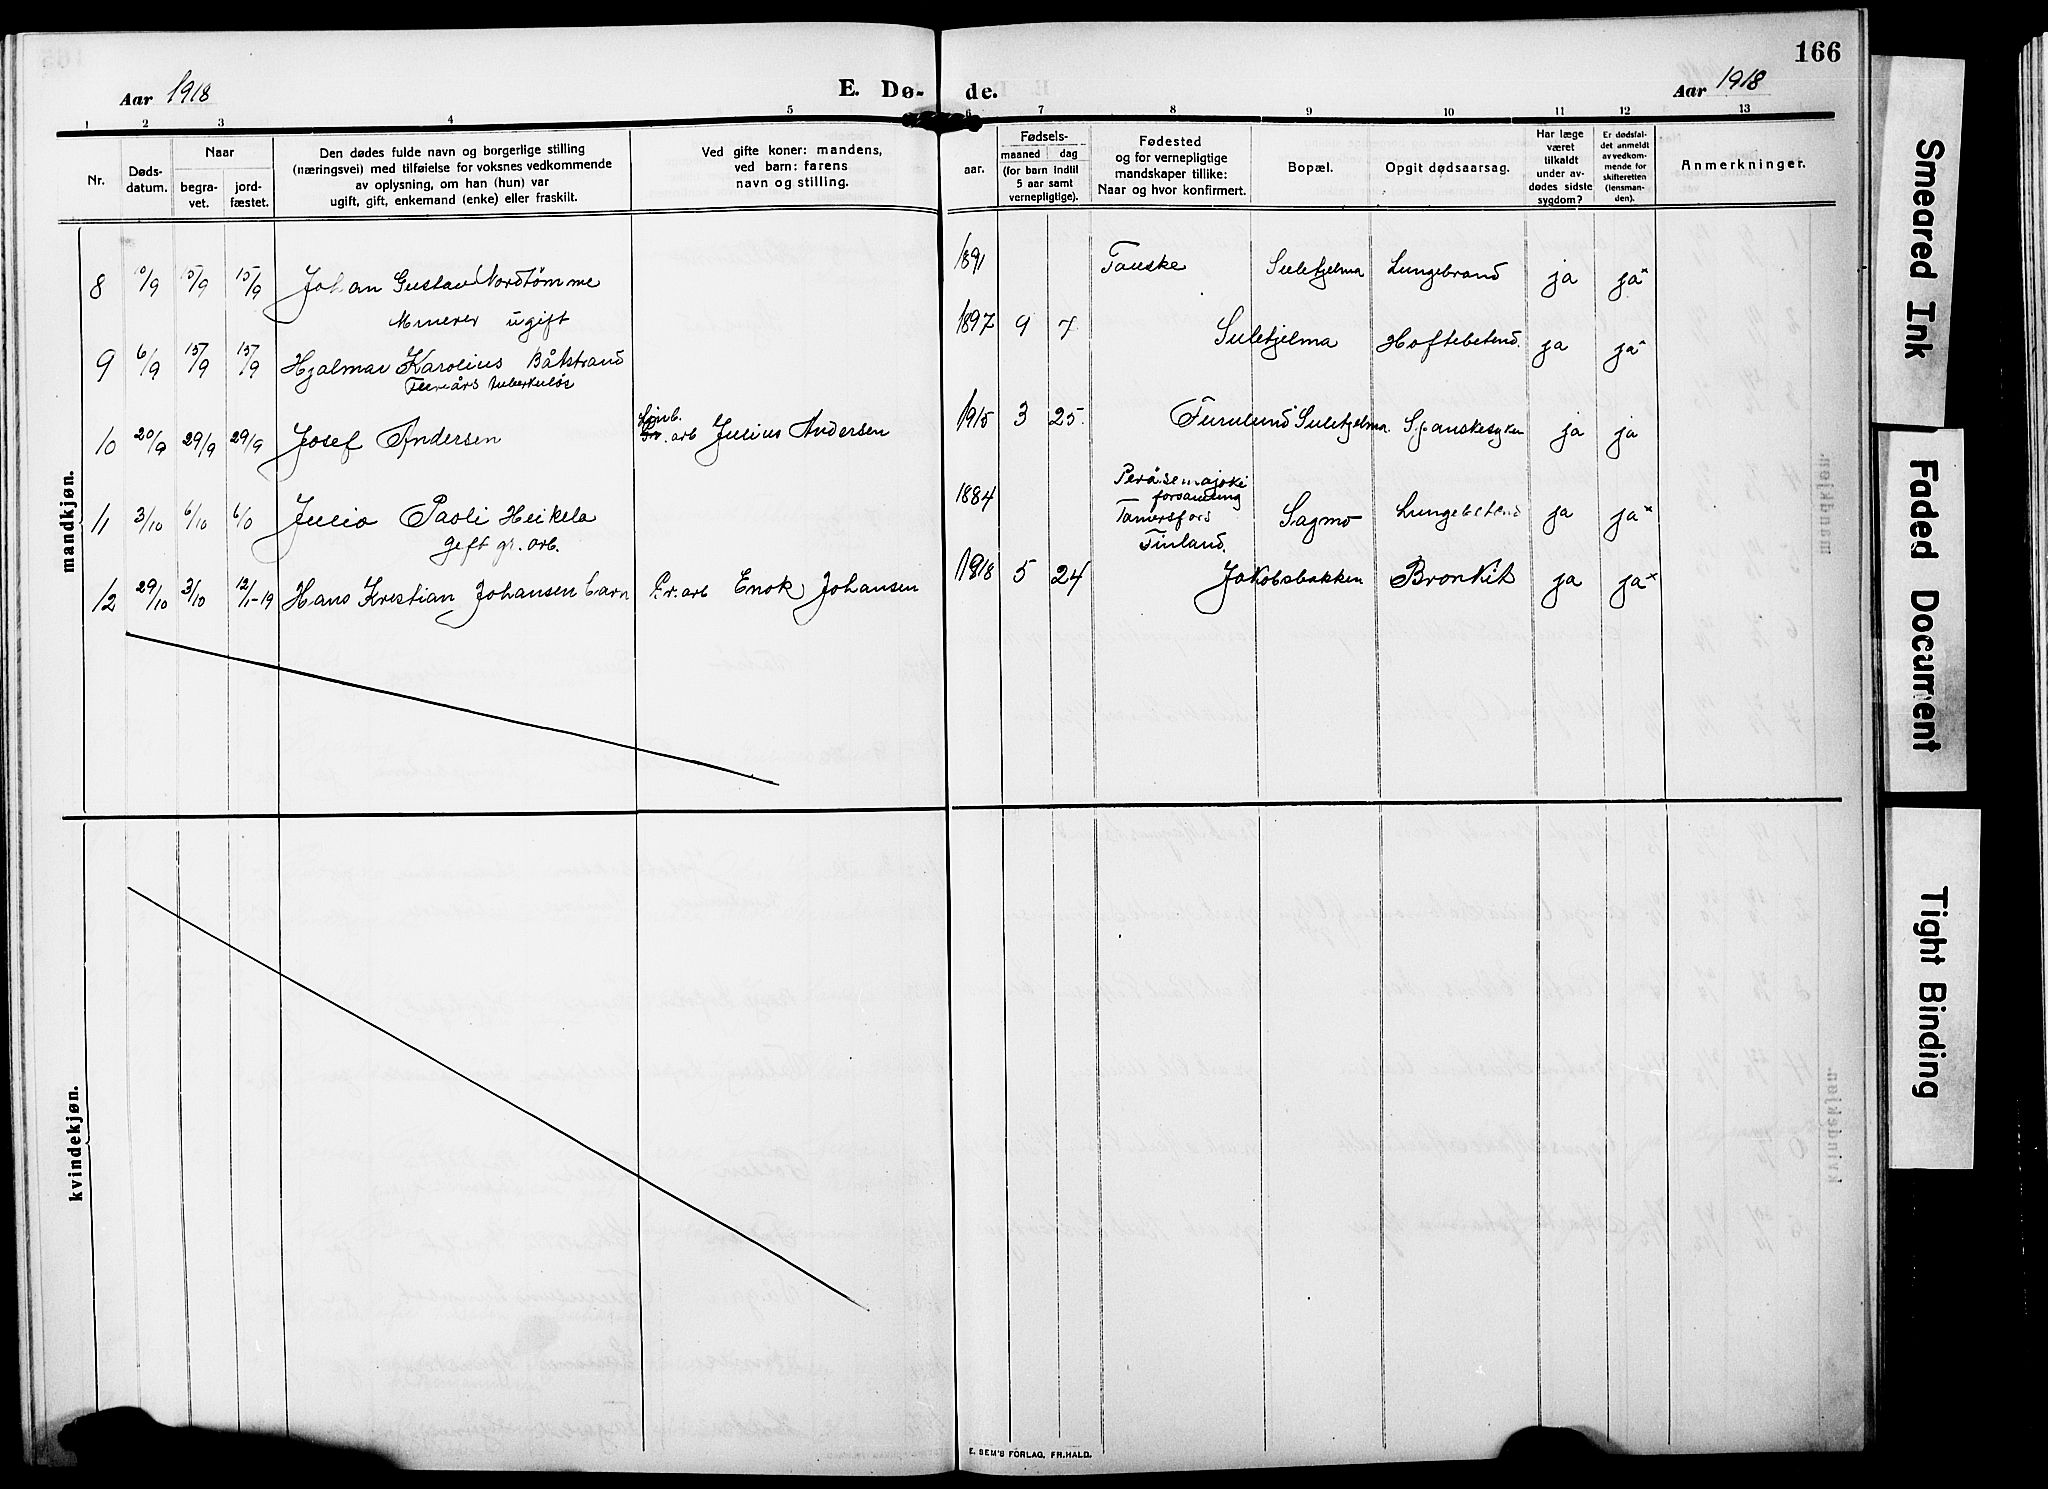 166
Aar 1918
E. Dø-
de.
Aar 1918
1 2 3 4 5 6 7 8 9 10 11 12 13
Nr.
Døds-
datum.
Naar
begra-
vet.
jord-
fæstet.
Den dødes fulde navn og borgerlige stilling
(næringsvei) med tilføielse for voksnes vedkommende
av oplysning, om han (hun) var
ugift, gift, enkemand (enke) eller fraskilt.
Ved gifte koner: mandens,
ved barn: farens
navn og stilling.
aar.
Fødsels-
maaned dag
(for barn indtil
5 aar samt
vernepligtige).
Fødested
og for vernepligtige
mandskaper tillike:
Naar og hvor konfirmert.
Bopæl.
Opgit dødsaarsag.
Har læge
været
tilkaldt
under av-
dødes sidste
sygdom?
Er dødsfal-
det anmeldt
av vedkom-
mende for
skifteretten
(lensman-
den).
Anmerkninger.
mandkjøn.
8 10/9 15/9 15/9 Johan Gustav Nordtømme 1891 Fauske Sulitjelma Lungebrand ja ja x
Minerer ugift
9 6/9 15/9 15/9 Hjalmar Karolius Båtstrand 1897 9 7 Sulitjelma Hoftebetend. ja ja x
Flerårs tuberkuløs
10 20/9 29/9 29/9 Josef Andersen arb Julius Andersen 1915 3 25. Furulund Sulitjelma. Spanskesyken ja ja
11 3/10 6/10 6/10 Julio Paoli Heikela 1884
forsamling
Tamersfors
Finland.
Sagmo Lungebetend ja ja x
Gift gr. arb.
12 29/10 3/10 12/1-19 Hans Kristian Johansen barn Gr. arb Enok Johansen 1918 5 24 Jakobsbakken Bronkit ja ja x
kvindekjøn.
E. SEM'S FORLAG, FR.HALD.
Smeared Ink
Faded Document
Tight Binding